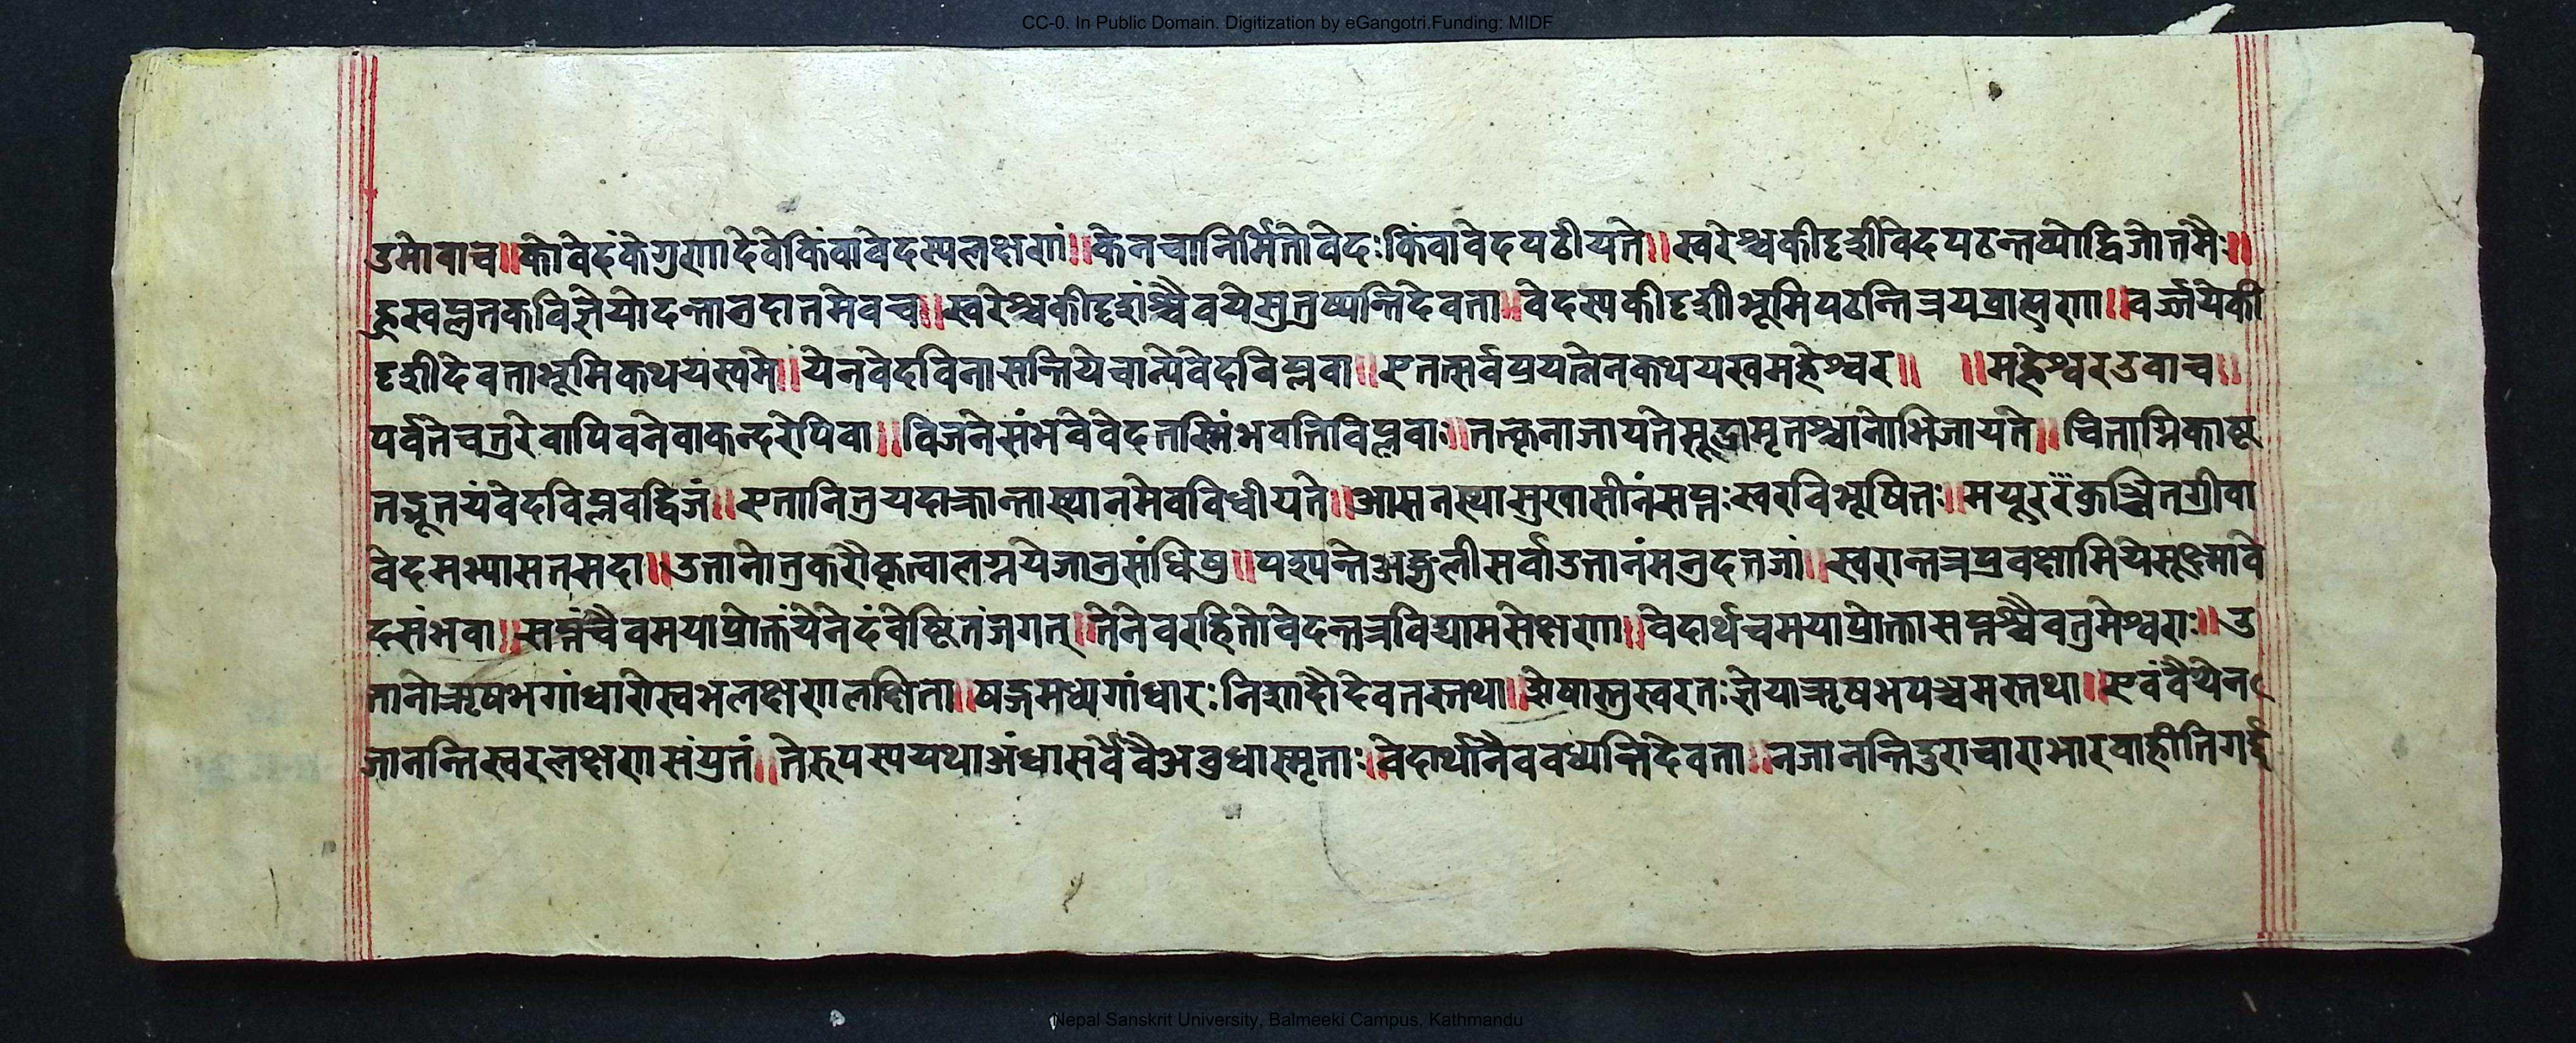 CC-0. In Public Domain. Digitization by eGangotri.Funding: MIDF
उमोवाच॥कोवेदंकेगुणादेवेकिंवावेदस्यलक्षणं॥केनचानिर्मितोवेदःकिंवावेदपठीयते॥स्वरेश्चकीदृशीवेदपठन्तव्योद्विजोतमैः॥
ह्रस्वप्लुतकविज्ञेयोदन्तानुदातमेवच॥स्वरेश्चकीदृशंश्चैवयेस्तुतुष्यन्तिदेवता॥वेदस्यकीदृशीभूमिपठन्तित्रयब्राह्मणा॥वर्ज्जयेकी
दृशीदेवताभूमिकथयस्वमे॥येनवेदविनासन्तियेचान्येवेदविप्लवा॥एतत्सर्वप्रयत्नेनकथयस्वमहेश्वर॥ ॥महेश्वरउवाच॥
पर्वतेचतुरेवापिवनेवाकन्दरेपिवा॥विजनेसंभवेवेदतस्मिंभवतिविप्लवाः॥तत्कृनाजायतेसूद्रामृतश्चानोभिजायते॥चिताग्निकाष्ट
तद्भूतयंवेदविप्लवद्विजं॥एतानित्रयदाक्रान्तास्थानमेवविधीयते॥आसनस्थासुखासीनंसप्तःस्वरविभूषितः॥मयूररंकुञ्चितग्रीवा
वेदमभ्यासतसदा॥उतानोत्रकरौकृत्वालग्नयेजानुसंधिषु॥पश्यन्तेअङ्गुलीसर्वाउतानंमनुदतजां॥स्वरान्तत्रप्रवक्षामियेसूक्ष्मावे
दसंभवा॥सप्तंचैवमयाप्रोक्तंयेनेदंवेष्टितंजगत्॥तेनेवरहितोवेदन्तत्रविद्यामसेक्षणा॥वेदार्थचमयाप्रोक्तासप्तश्चैवतुमेश्वराः॥उ
तानोऋषभगांधारोस्वभलक्षणलक्षिता॥षड्गमध्यगांधारःनिशादौदेवतस्तथा॥शेषास्तुस्वरतःज्ञेयाऋषभपञ्चमस्तथा॥एवंवैयेन
जानन्तिस्वरलक्षणसंयुतं॥तेरुपस्ययथाअंधासर्वेवैअवुधास्मृताः॥वेदार्थानैववध्यन्तिदेवता॥नजानन्तिदुराचाराभारवाहीतिगर्द्द
Nepal Sanskrit University, Balmeeki Campus, Kathmandu